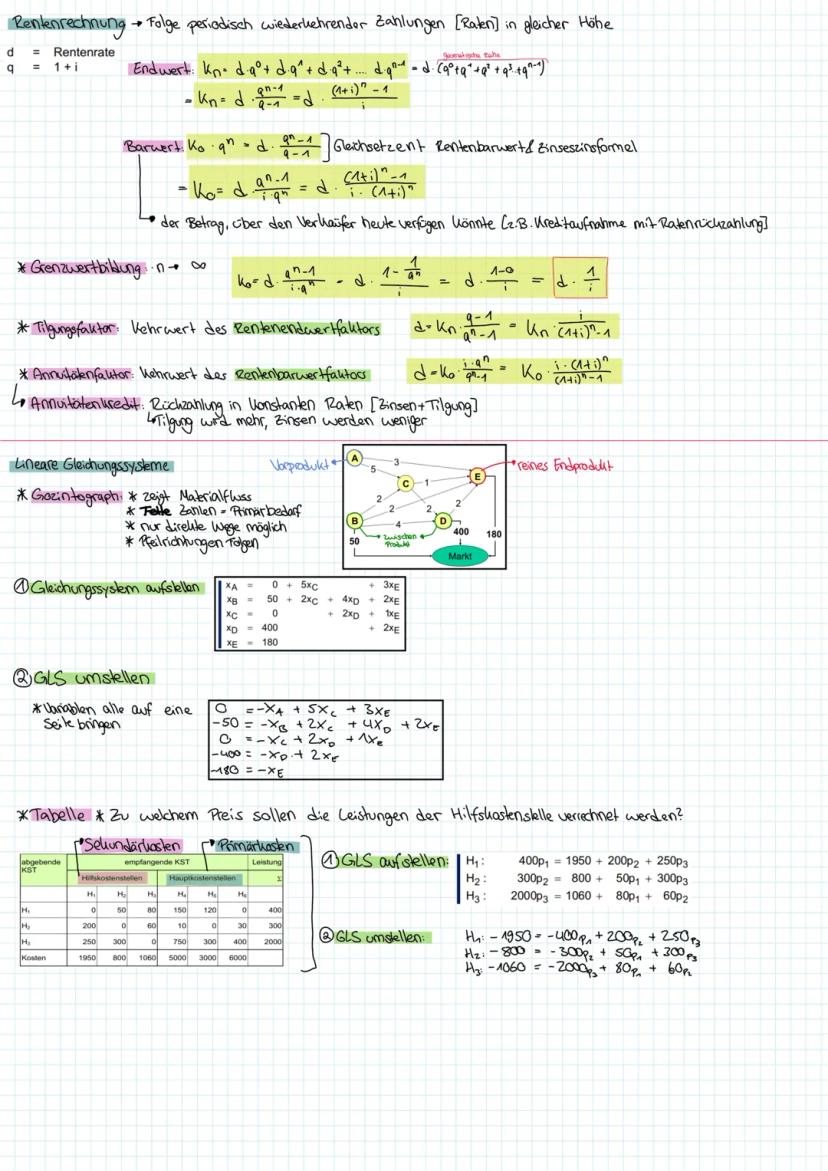 Rentenrechnung → Folge periodisch wiederkehrender Zahlungen [Raten] in gleicher Höhe
d = Rentenrate
q = 1 + i
geometrische Reihe
Endwert: Kn = d·q⁰ + d·q¹ + d·q² + .... d·qⁿ⁻¹ = d·(q⁰+q¹+q²+q³..+qⁿ⁻¹)
= Kn = d · (qⁿ-1)/(q-1) = d · ((1+i)ⁿ - 1)/i
Barwert: K₀ · qⁿ = d · (qⁿ-1)/(q-1) ] Gleichsetzen Rentenbarwert & Zinseszinsformel
= K₀ = d · (qⁿ-1)/(i·qⁿ) = d · ((1+i)ⁿ-1)/(i·(1+i)ⁿ)
der Betrag, über den Verkäufer heute verfügen könnte [z.B. Kreditaufnahme mit Ratenrückzahlung]
* Grenzwertbildung: n → ∞ K₀ = d · (qⁿ-1)/(i·qⁿ) = d · (1 - 1/qⁿ)/i = d · (1-0)/i = d · 1/i
* Tilgungsfaktor: Kehrwert des Rentenendwertfaktors d = Kn · (q-1)/(qⁿ-1) = Kn · i/((1+i)ⁿ-1)
* Annuitätenfaktor: Kehrwert des Rentenbarwertfaktors d = K₀ · (i·qⁿ)/(qⁿ-1) = K₀ · (i·(1+i)ⁿ)/((1+i)ⁿ-1)
↳ Annuitätenkredit: Rückzahlung in konstanten Raten [Zinsen+Tilgung]
↳ Tilgung wird mehr, Zinsen werden weniger
Lineare Gleichungssysteme
* Gozintograph: * zeigt Materialfluss
* Zahlen = Primärbedarf
* nur direkte Wege möglich
* Pfeilrichtungen folgen
Vorprodukt
A
3
5
C
1
E
reines Endprodukt
2
2
2
2
B
4
D
Zwischen
Produkt
50
400
180
Markt
① Gleichungssystem aufstellen
xA = 0 + 5xC + 3xE
xB = 50 + 2xC + 4xD + 2xE
xC = 0 + 2xD + 1xE
xD = 400 + 2xE
xE = 180
② GLS umstellen
* Variablen alle auf eine
Seite bringen
0 = -xA + 5xC + 3xE
-50 = -xB + 2xC + 4xD + 2xE
0 = -xC + 2xD + 1xE
-400 = -xD + 2xE
-180 = -xE
* Tabelle * Zu welchem Preis sollen die Leistungen der Hilfskostenstelle verrechnet werden?
Sekundärkosten Primärkosten
abgebende KST empfangende KST Leistung
Hilfskostenstellen Hauptkostenstellen Σ
H₁ H₂ H₃ H₄ H₅ H₆
H₁ 0 50 80 150 120 0 400
H₂ 200 0 60 10 0 30 300
H₃ 250 300 0 750 300 400 2000
Kosten 1950 800 1060 5000 3000 6000
① GLS aufstellen:
H₁: 400p₁ = 1950 + 200p₂ + 250p₃
H₂: 300p₂ = 800 + 50p₁ + 300p₃
H₃: 2000p₃ = 1060 + 80p₁ + 60p₂
② GLS umstellen:
H₁: -1950 = -400p₁ + 200p₂ + 250p₃
H₂: -800 = -300p₂ + 50p₁ + 300p₃
H₃: -1060 = -2000p₃ + 80p₁ + 60p₂